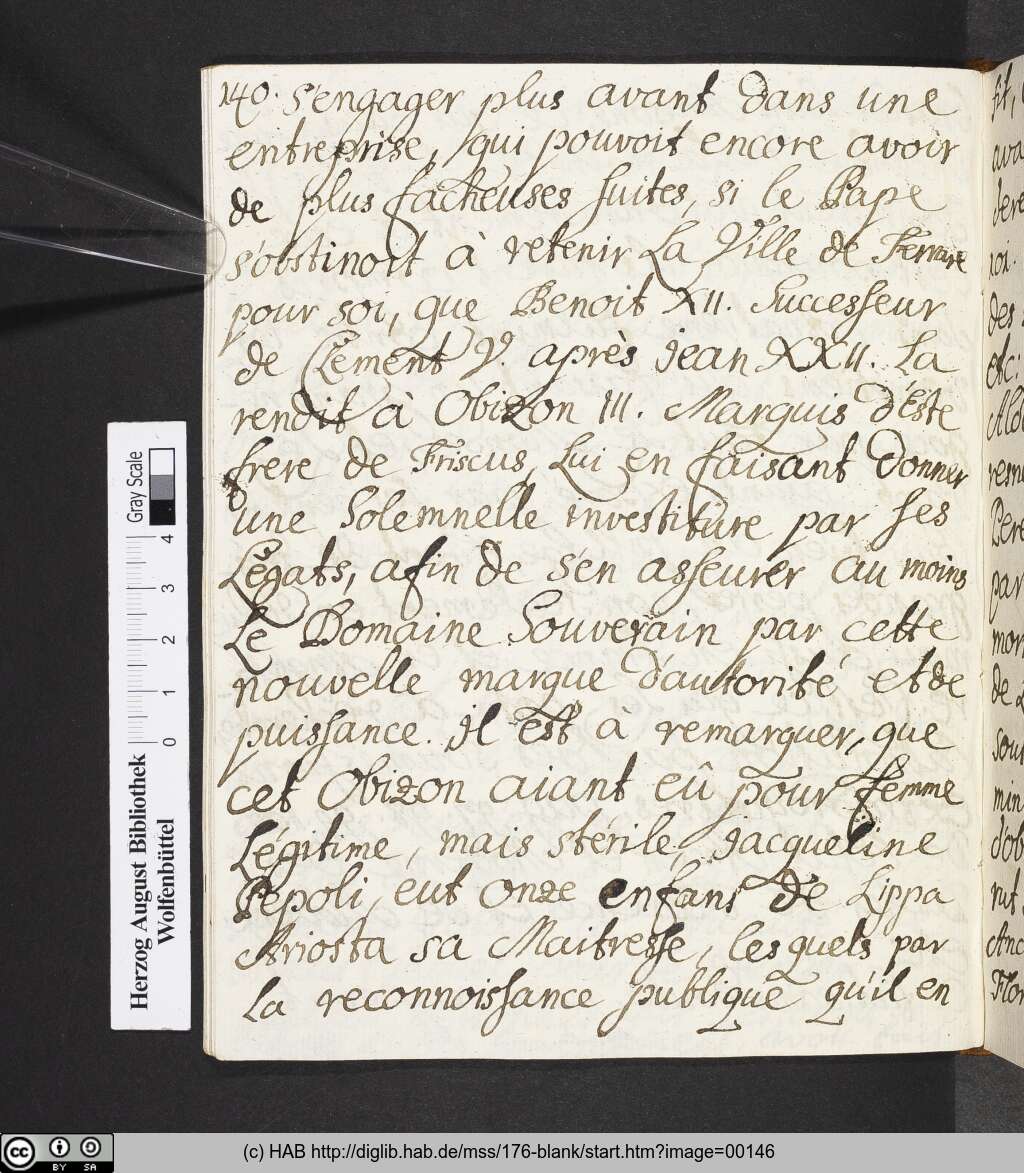 140. s'engager plus avant dans une
entreprise, qui pouvoit encore avoir
de plus facheuses suites, si le Pape
s'obstinoit à retenir La Ville de Ferrare
pour soi, que Benoit XII. Successeur
de Clement V. après jean XXII. La
rendit à Obizon III. Marquis d'Este
frere de Friscus, Lui en faisant donner
une Solemnelle investiture par ses
Légats, afin de s'en asseurer au moins
Le Domaine Souverain par cette
nouvelle marque d'autorité et de
puissance. il est à remarquer, que
cet Obizon aiant eû pour femme
Légitime, mais stérile, jacqueline
Pepoli, eut onze enfans de Lippa
Ariosta sa Maitresse, les quels par
La reconnoissance publique qu'il en
Herzog August Bibliothek
Wolfenbüttel
0 1 2 3 4
Gray Scale
cc BY SA
(c) HAB http://diglib.hab.de/mss/176-blank/start.htm?image=00146